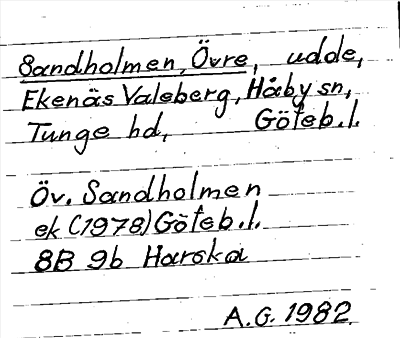 Sandholmen, Övre, udde,
Ekenäs Valeberg, Håby sn,
Tunge hd, Göteb. l.
Öv. Sandholmen
ek (1978) Göteb. l.
8B 9b Harska
A.G. 1982.